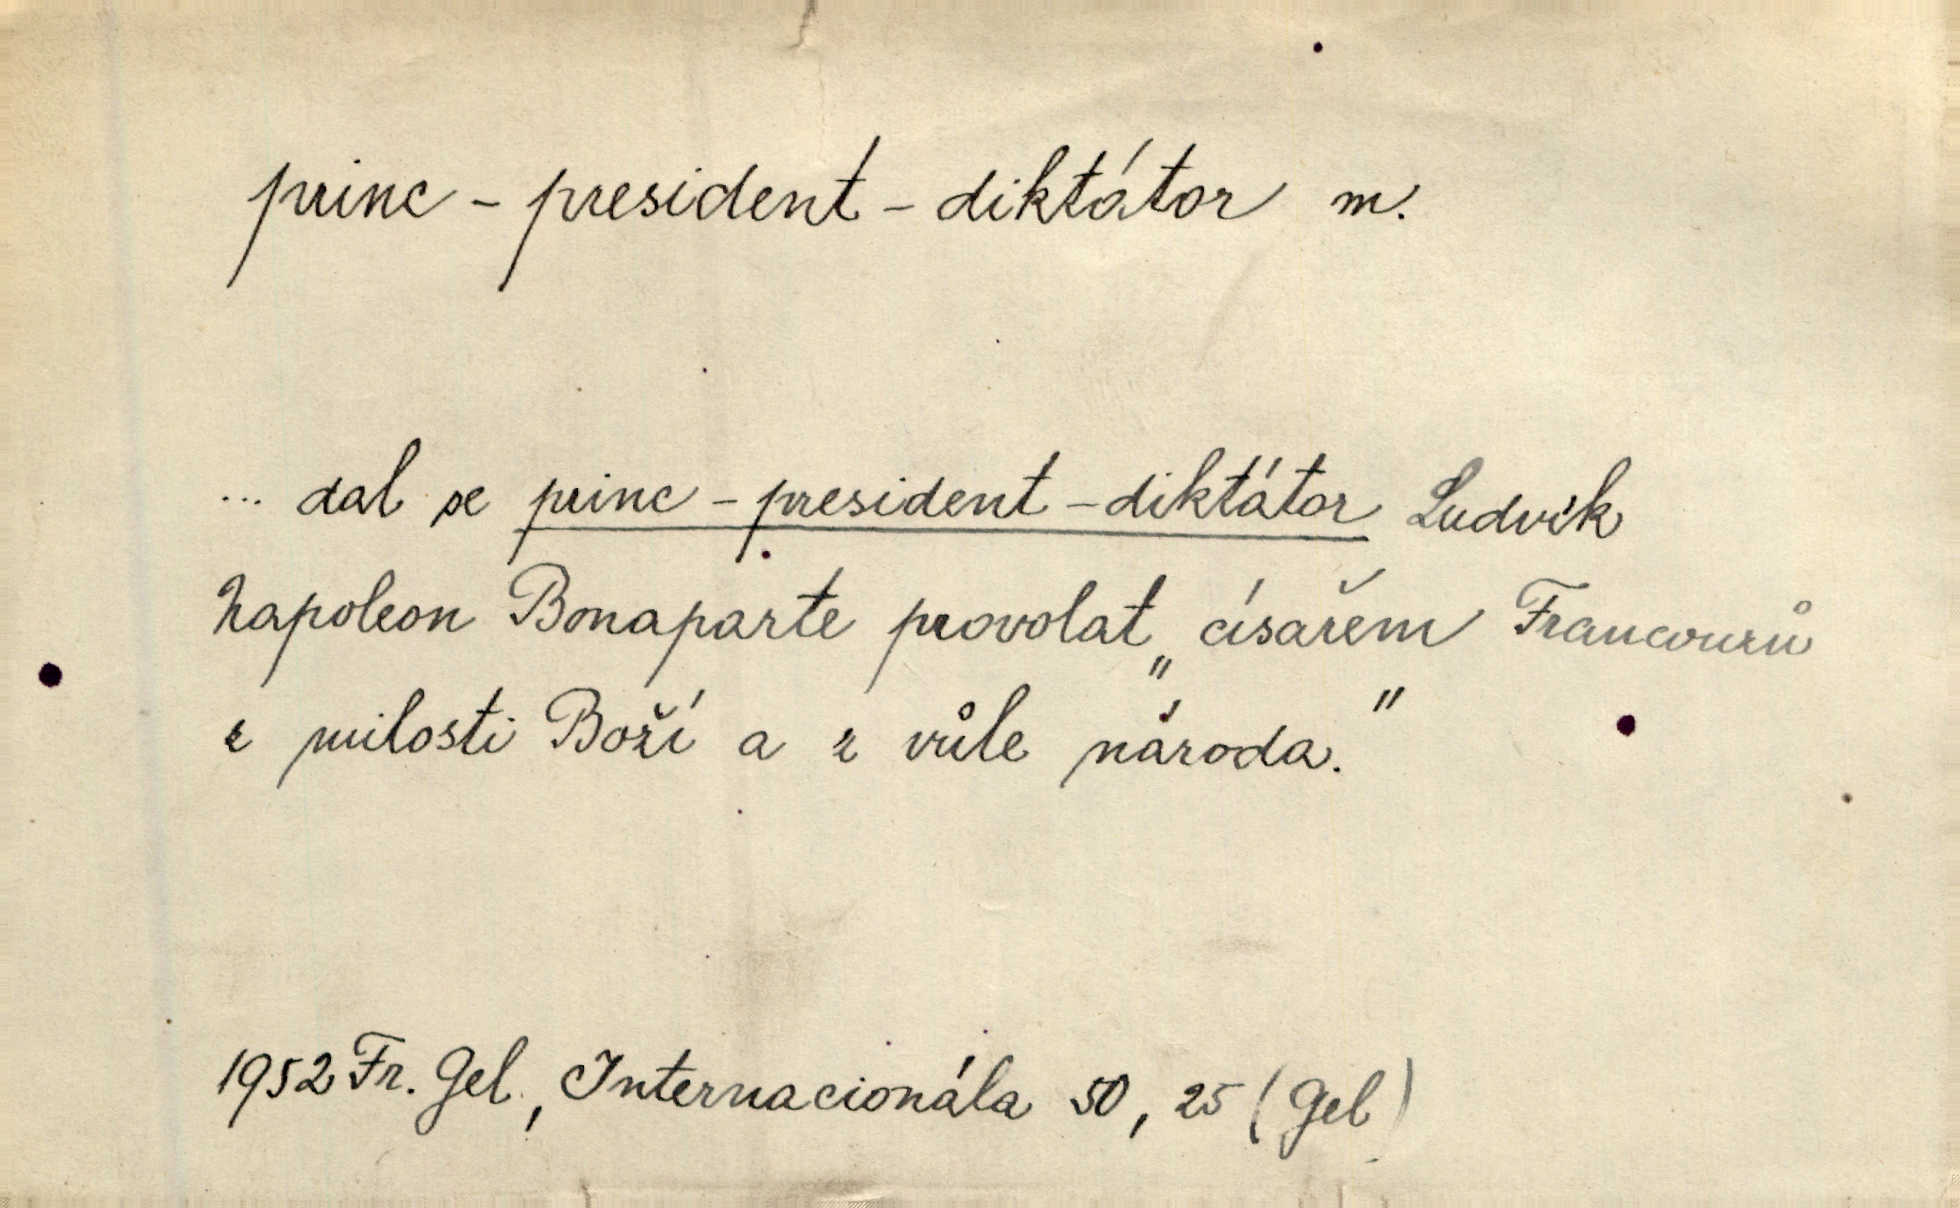 princ - president - diktátor m.
... dal se princ - president - diktátor Ludvík
Napoleon Bonaparte provolat „císařem Francouzů
z milosti Boží a z vůle národa."
1952 Fr. Gel, Internacionála 50, 25 (Gel)